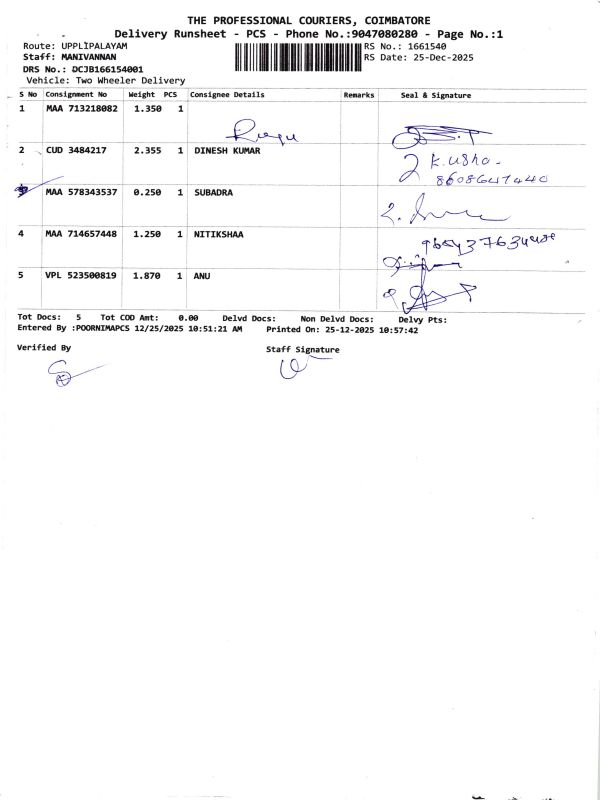 THE PROFESSIONAL COURIERS, COIMBATORE
Delivery Runsheet - PCS - Phone No.:9047080280 - Page No.:1
Route: UPPLIPALAYAM
RS No.: 1661540
Staff: MANIVANNAN
RS Date: 25-Dec-2025
DRS No.: DCJB166154001
Vehicle: Two Wheeler Delivery
S No Consignment No Weight PCS Consignee Details Remarks Seal & Signature
1 MAA 713218082 1.350 1
2 CUD 3484217 2.355 1 DINESH KUMAR
K. Usha.
8608647440
MAA 578343537 0.250 1 SUBADRA
4 MAA 714657448 1.250 1 NITIKSHAA
5 VPL 523500819 1.870 1 ANU
Tot Docs: 5 Tot COD Amt: 0.00 Delvd Docs: Non Delvd Docs: Delvy Pts:
Entered By :POORNIMAPCS 12/25/2025 10:51:21 AM Printed On: 25-12-2025 10:57:42
Verified By
Staff Signature